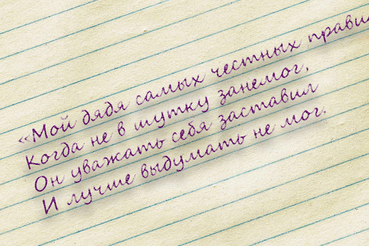 «Мой дядя самых честных прави
Когда не в шутку занемог,
Он уважать себя заставил
И лучше выдумать не мог.